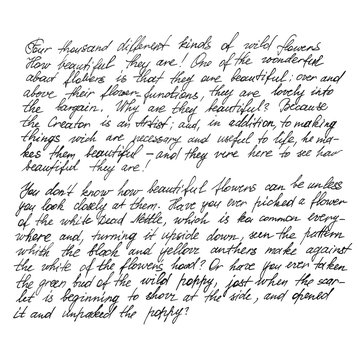 Four thousand different kinds of wild flowers
How beautiful they are! One of the wonderful
about flowers is that they are beautiful; over and
above their flower-functions, they are lovely into
the bargain. Why are they beautiful? Because
the Creator is an Artist; and, in addition, to making
things wich are necessary and useful to life, he ma-
kes them beautiful – and they were here to see how
beautiful they are!
You don't know how beautiful flowers can be unless
you look closely at them. Have you ever picked a flower
of the white Dead Nettle, which is so common every-
where and, turning it upside down, seen the pattern
which the black and yellow anthers make against
the white of the flowers hood? Or have you ever taken
the green bud of the wild poppy, just when the scar-
let is beginning to show at the side, and opened
it and unpacked the poppy?